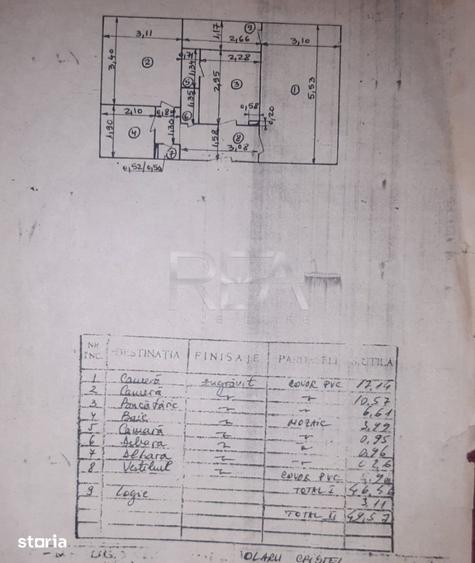 9
3,11
1,17
2,66
3,10
3,40
2
0,71
1,34
2,28
5
2,95
3
1
5,53
1,35
2,10
0,87
6
0,58
0,20
1,90
4
1,30
8
7
1,58
3,08
0,52/0,50
REA
NR INC. DESTINAȚIA FINISAJE PARDOSELI S.UTILA
1 Cameră zugrăvit COVOR PVC 17,14
2 Camera 10,57
3 6,61
4 Baie MOZAIC 3,99
5 Camară 0,95
6 Debara 0,96
7
8 Vestibul COVOR PVC
TOTAL I 46,56
9 Logie 3,11
TOTAL II 49,57
storia
OLARU CRISTEI